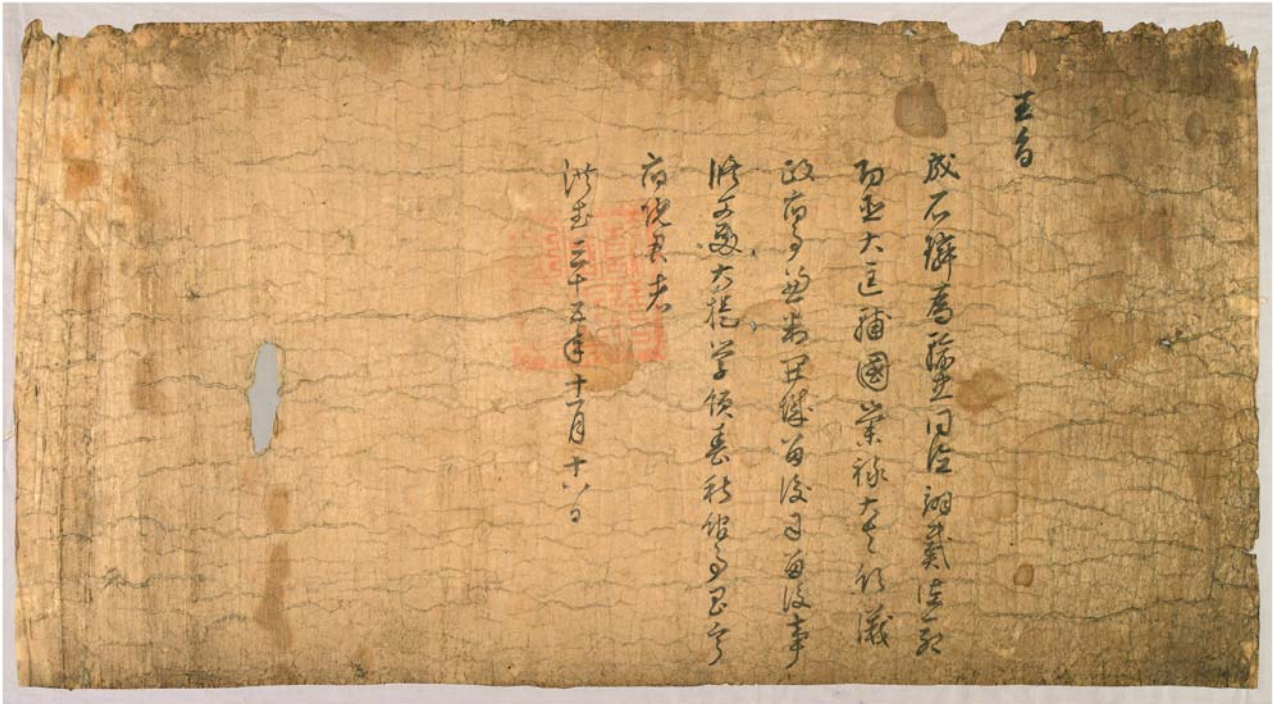 王旨
成石璘爲輸忠同德翊戴佐命
功臣大匡輔國崇祿大夫領議
政府事兼判開城留後司留後事
修文殿大提學領春秋館事昌寧
府院君者
洪武三十五年十一月十八日